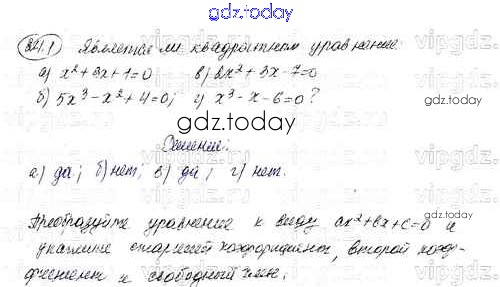 gdz.today
24.1 Является ли квадратным уравнение:
а) x²+3x+1=0 в) 2x²+3x-7=0
б) 5x³-x²+4=0; г) x³-x-6=0?
gdz.today
Решение:
а) да; б) нет; в) да; г) нет.
Преобразуйте уравнение к виду ax²+bx+c=0 и
укажите старший коэффициент, второй коэф-
фициент и свободный член.
gdz.today